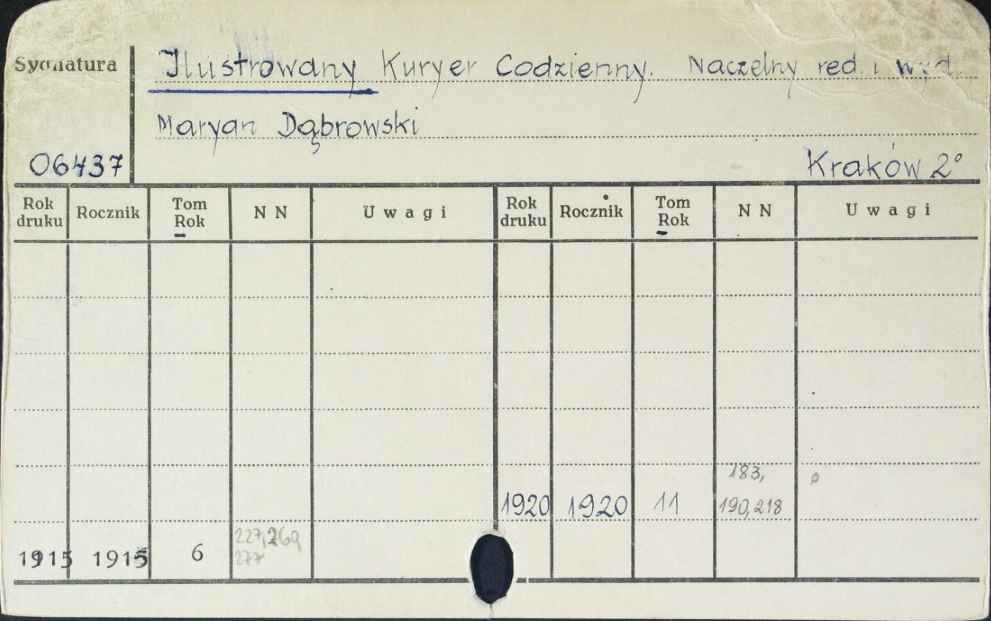 Sygnatura Ilustrowany Kuryer Codzienny. Naczelny red. i wyd.
Maryan Dąbrowski
06437 Kraków 2°
Rok druku Rocznik Tom Rok NN Uwagi Rok druku Rocznik Tom Rok NN Uwagi
183,
1920 1920 11 190,218
227,269,
1915 1915 6 277